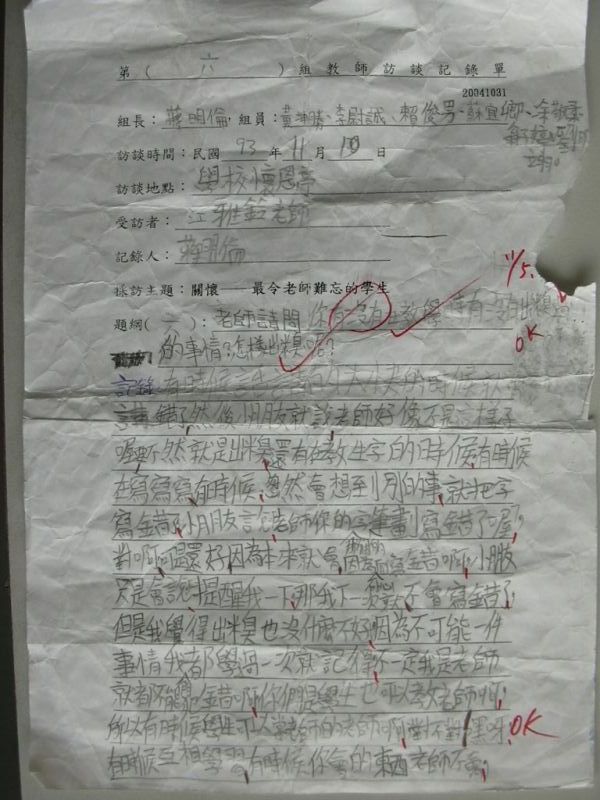 第（ 六 ）組教師訪談記錄單
20041031
組長：蔣明倫，組員：黃 勝、李尉誠、賴俊男、蘇宜卿、余
訪談時間：民國 93 年 11 月 10 日
訪談地點：學校懷恩亭
受訪者：江雅鈴老師
記錄人：蔣明倫
11/5.
採訪主題：關懷——最令老師難忘的學生
題綱（六）：老師請問你有沒有在教學時有沒有出糗過…
OK
的事情？怎樣出糗呢？
記錄 有時候 的時候就
講錯了然後小朋友就說老師好像不是這樣子
喔要不然就是出糗還有在教生字的時候，有時候
在寫寫寫有時候，忽然會想到別的事，就把字
寫錯了，小朋友說老師你的筆劃寫錯了喔，
對啊啊還好因為本來就會 寫錯啊，小朋友
只是會說提醒我一下，那我下一次就不會寫錯了，
但是我覺得出糗也沒什麼不好，因為不可能一件
事情我都學過一次就記得，不一定我是老師
就都不能犯錯啊，你們是學生也可以教老師啊，
所以有時候學生可以當老師的老師啊，對不對 呀，OK
有時候互相學習，有時候你會的東西老師不會，